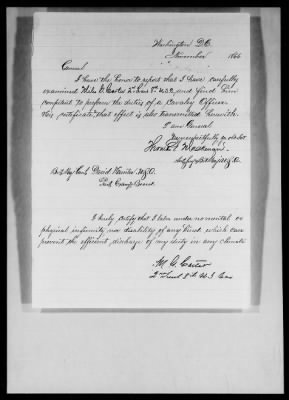 Washington D.C.
November 1866
General
I have the honor to report that I have carefully
examined Miles G. Carter 2d Lieut 8th U.S.C. and find him
competent to perform the duties of a Cavalry Officer
His certificate that effect is also transmitted herewith.
I am General
Very respectfully yr obt Svt
Bvt Maj Genl David Hunter U.S.A.
Prest Cavy Board
I hereby certify that I labor under no mental or
physical infirmity nor disability of any kind which can
prevent the efficient discharge of my duty in any climate
M. G. Carter
2 Lieut 8 U.S. Cav